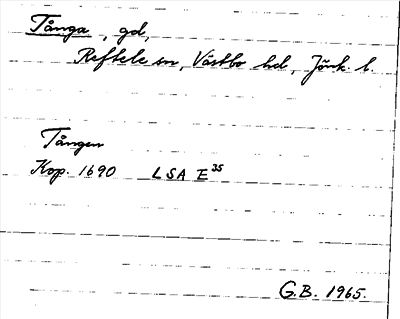 Tånga, gd,
Reftele sn, Västbo hd, Jönk. l.
Tången
Kop. 1690 LSA E 35
G.B. 1965.